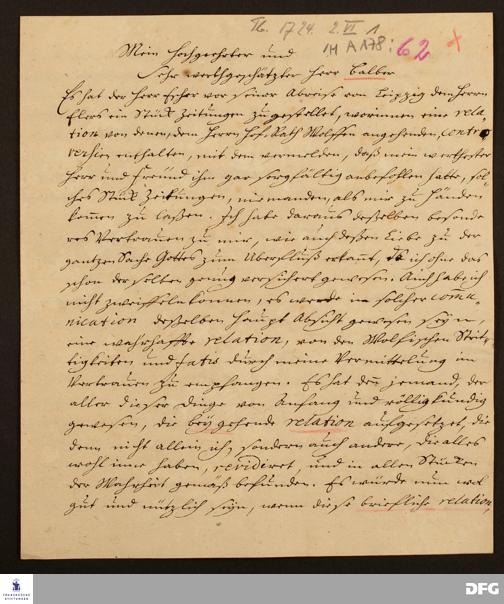 Th. 1724. 2. VI 1
1H A 178: 62
Mein Hochgeehrter und
Sehr werthgeschätzter Herr Balber
Es hat der Herr Escher vor seiner Abreise von Leipzig dem Herrn
Elers ein Stück Zeitungen zugestellet, worinnen eine rela-
tion von denen, dem Herrn Hof-Rath Wolffen angehenden, contro-
versien enthalten, mit dem vermelden, daß mein werthester
Herr und Freund ihm gar sorgfältig anbefohlen habe, sol-
ches Stück Zeitungen, niemanden, als mir zu Händen
kommen zu laßen. Ich habe daraus deßelben besonde-
res Vertrauen zu mir, wie auch deßen Liebe zu der
gantzen Sache Gottes zum Überfluß erkannt, da ich ohne das
schon derselben genug versichert gewesen. Auch habe ich
nicht zweiffeln können, es werde in solcher commu-
nication deßelben Haupt Absicht gewesen seyn,
eine wahrhaffte relation, von den Wolfischen Strit-
tigkeiten und fatis durch meine Vermittelung im
Vertrauen zu empfangen. Es hat den jemand, der
aller dieser Dinge von Anfang und völlig kündig
gewesen, die beygehende relation aufgesetzet, die
denn nicht allein ich, sondern auch andere, die alles
wohl inne haben, revidiret, und in allen Stücken
der Wahrheit gemäß befunden. Es würde nun wol
gut und nützlich seyn, wenn diese briefliche relation,
FRANCKESCHE
STIFTUNGEN
DFG